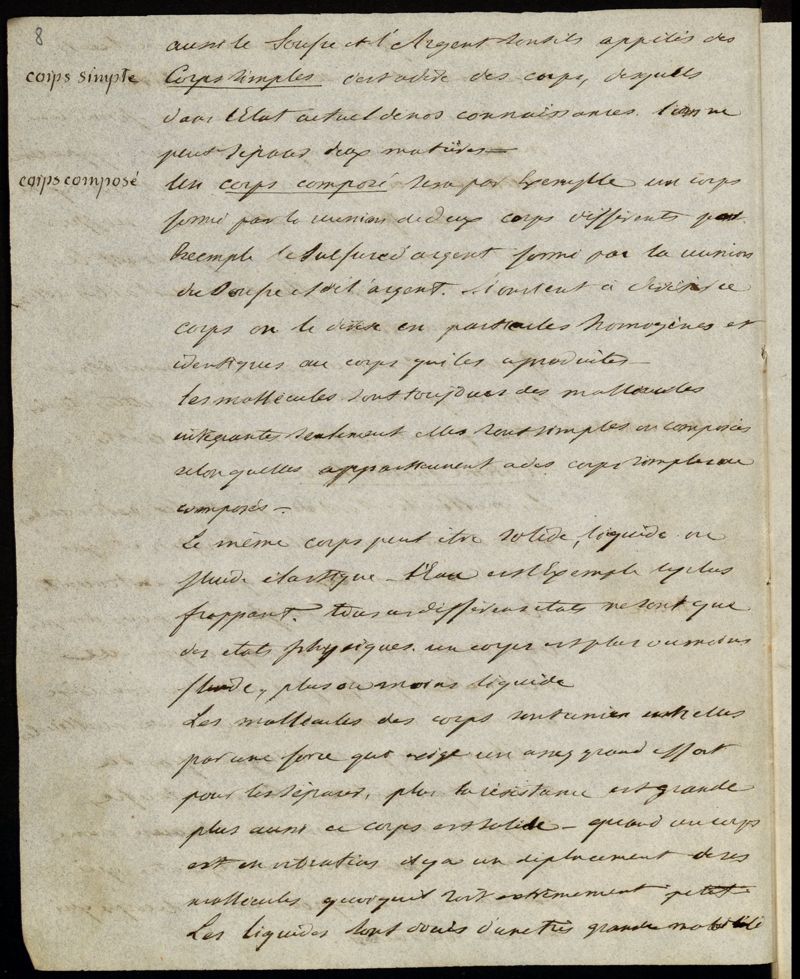 8
aussi le Soufre et l'Argent sont ils appelés des
corps simple
Corps simples c'est a dire des corps, desquels
dans l'Etat actuel de nos connaissances l'on ne
peut séparer deux matières —
corps composé
Un corps composé sera par Exemple un corps
formé par la reunion de deux corps différents par
Exemple le Sulfure d'argent formé par la reunion
du Soufre et de l'argent. Si on vient a diviser ce
corps on le divise en particules homogènes et
identiques au corps qui les a produites —
Les mollécules sont toujours des mollécules
intégrantes seulement elles sont simples ou composées
selon quelles appartiennent a des corps simples ou
composés —
Le même corps peut être solide, liquide ou
fluide élastique — l'Eau est l'Exemple le plus
frappant. Tous ces différens etats ne sont que
des etats physiques. un corps est plus ou moins
fluide, plus ou moins liquide
Les mollécules des corps sont unies entr'elles
par une force qui exige un assez grand effort
pour les séparer, plus la résistance est grande
plus aussi ce corps est solide — quand un corps
est en vibration il y a un déplacement de ses
mollécules quoiqu'il soit extrêmement petit
Les liquides sont doués d'une très grande mobilité